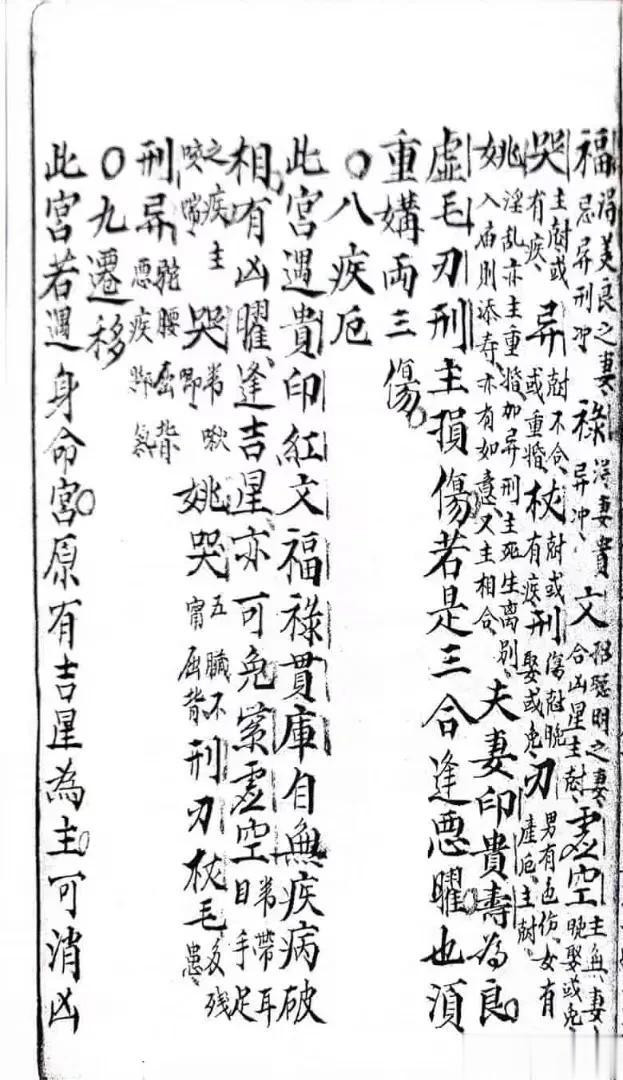 福得美良之妻、忌异刑冲、祿得妻貴异冲、文招聰明之妻、合凶星主尅、虛空主無妻、晚娶或免、
哭主尅或有疾、异尅不合、或重婚、杖尅或有疾、刑傷尅晚娶或免、刃男有色伤、女有產厄、主尅、
姚淫乱亦主重婚、加异刑主死生离别、入庙則添寿、亦有如意、又主相合、夫妻印貴壽為良
虛毛刃刑主損傷若是三合逢惡曜也須
重媾両三傷
○八疾厄
此宮遇貴印紅文福祿貫庫自無疾病破
相有凶曜逢吉星亦可免紫虛空常帶耳目手足
之疾主咳喘、哭常啾唧、姚哭五臟不甯屈背刑刃杖毛多残患、
刑异駝腰屈背惡疾脚氣
○九遷移
此宮若遇身命宮原有吉星為主可消凶